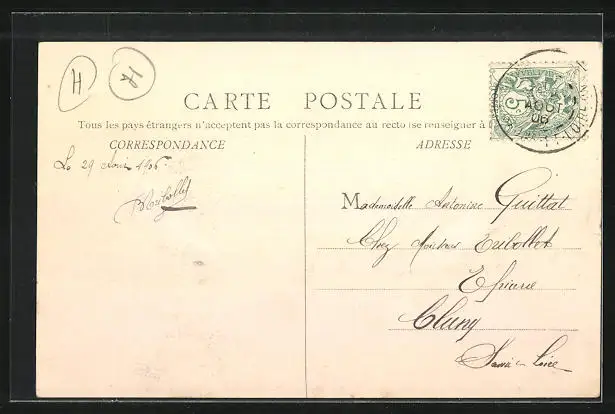 H
CARTE POSTALE
Tous les pays étrangers n'acceptent pas la correspondance au recto (se renseigner à l
CORRESPONDANCE
ADRESSE
Le 29 Août 1906
Mademoiselle Antonine Guittat
Chez Monsieur Tribollet
Epicerie
Cluny
Saône et Loire
5
AOUT
06